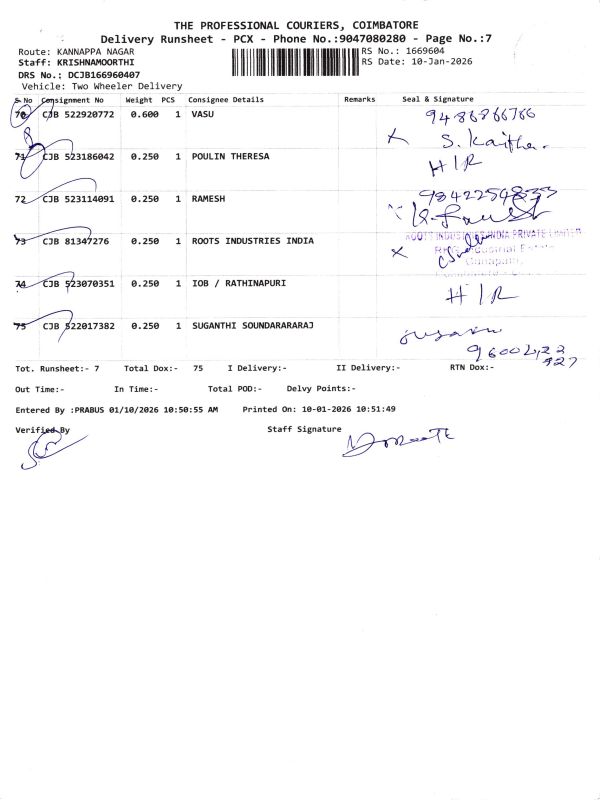 THE PROFESSIONAL COURIERS, COIMBATORE
Delivery Runsheet - PCX - Phone No.:9047080280 - Page No.:7
Route: KANNAPPA NAGAR
RS No.: 1669604
Staff: KRISHNAMOORTHI
RS Date: 10-Jan-2026
DRS No.: DCJB166960407
Vehicle: Two Wheeler Delivery
S No Consignment No Weight PCS Consignee Details Remarks Seal & Signature
70 CJB 522920772 0.600 1 VASU 9486866766
S. Kaitha.
71 CJB 523186042 0.250 1 POULIN THERESA H/R
72 CJB 523114091 0.250 1 RAMESH 9842254833
73 CJB 81347276 0.250 1 ROOTS INDUSTRIES INDIA ROOTS INDUSTRIES INDIA PRIVATE LIMITED
Industrial Estate
74 CJB 523070351 0.250 1 IOB / RATHINAPURI H/R
75 CJB 522017382 0.250 1 SUGANTHI SOUNDARARARAJ
Tot. Runsheet:- 7 Total Dox:- 75 I Delivery:- II Delivery:- RTN Dox:-
Out Time:- In Time:- Total POD:- Delvy Points:-
Entered By :PRABUS 01/10/2026 10:50:55 AM Printed On: 10-01-2026 10:51:49
Verified By Staff Signature